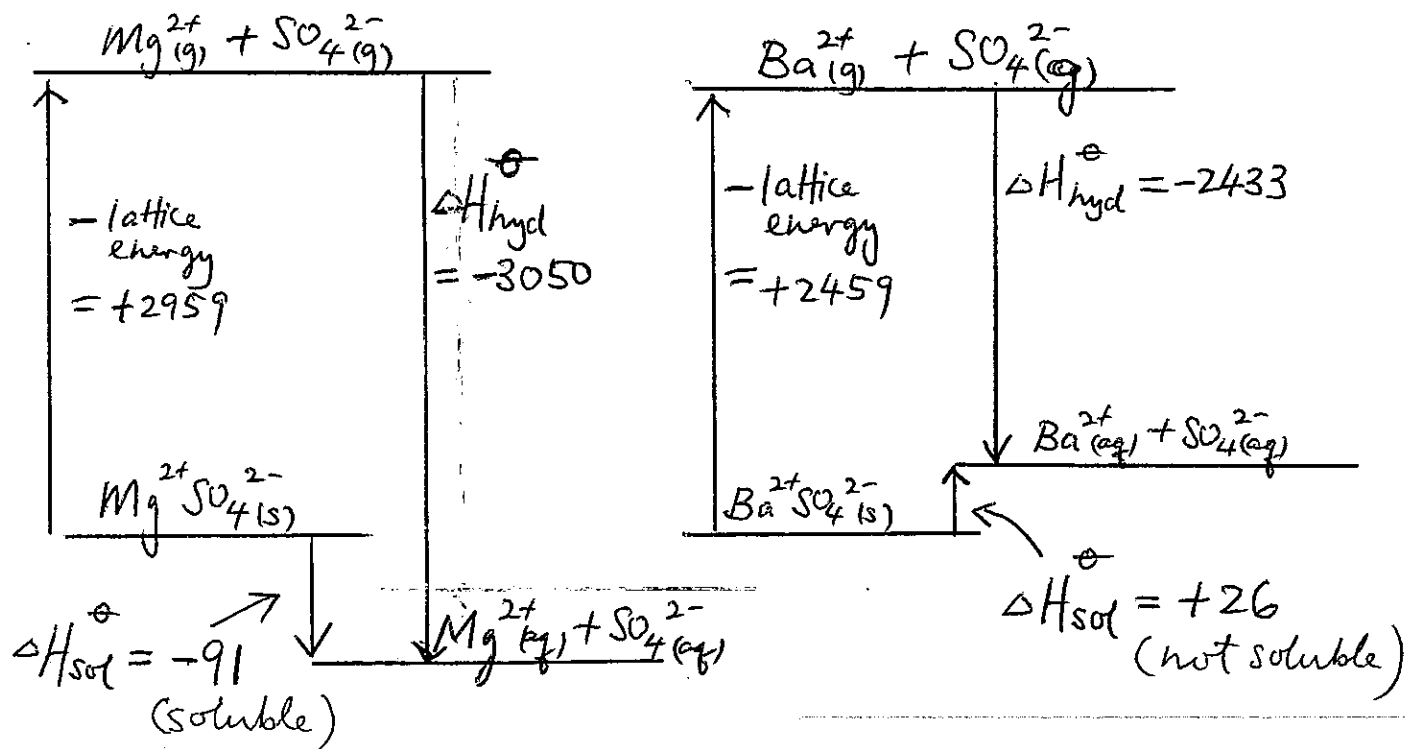 Mg²⁺(g) + SO₄²⁻(g)
-lattice
energy
= +2959
ΔH⦵hyd
= -3050
Mg²⁺SO₄²⁻(s)
ΔH⦵sol = -91
(soluble)
Mg²⁺(aq) + SO₄²⁻(aq)
Ba²⁺(g) + SO₄²⁻(g)
-lattice
energy
= +2459
ΔH⦵hyd = -2433
Ba²⁺(aq) + SO₄²⁻(aq)
Ba²⁺SO₄²⁻(s)
ΔH⦵sol = +26
(not soluble)